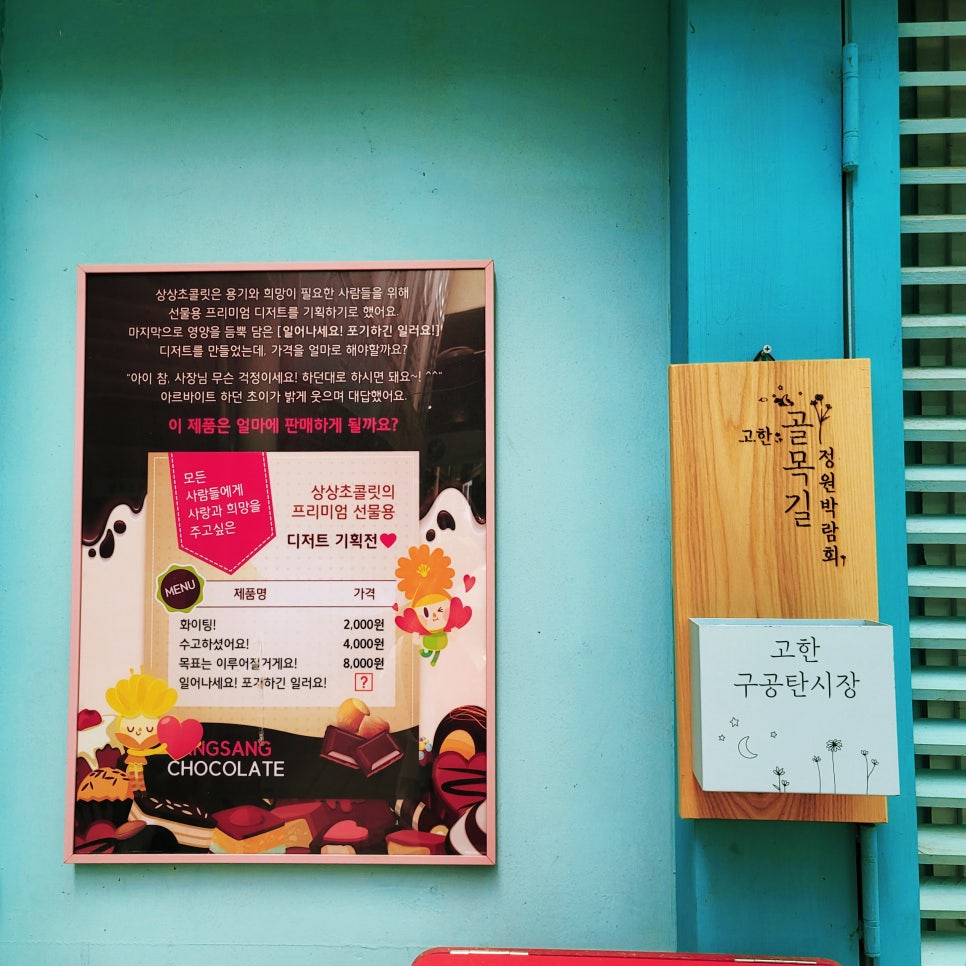 상상초콜릿은 용기와 희망이 필요한 사람들을 위해
선물용 프리미엄 디저트를 기획하기로 했어요.
마지막으로 영양을 듬뿍 담은 [일어나세요! 포기하긴 일러요!]
디저트를 만들었는데, 가격을 얼마로 해야할까요?
"아이 참, 사장님 무슨 걱정이세요! 하던대로 하시면 돼요~! ^^"
아르바이트 하던 초이가 밝게 웃으며 대답했어요.
이 제품은 얼마에 판매하게 될까요?
모든
사람들에게
사랑과 희망을
주고싶은
상상초콜릿의
프리미엄 선물용
디저트 기획전
MENU
제품명 가격
화이팅! 2,000원
수고하셨어요! 4,000원
목표는 이루어질거게요! 8,000원
일어나세요! 포기하긴 일러요! ?
NGSANG
CHOCOLATE
고한
골목길
정원박람회
고한
구공탄시장